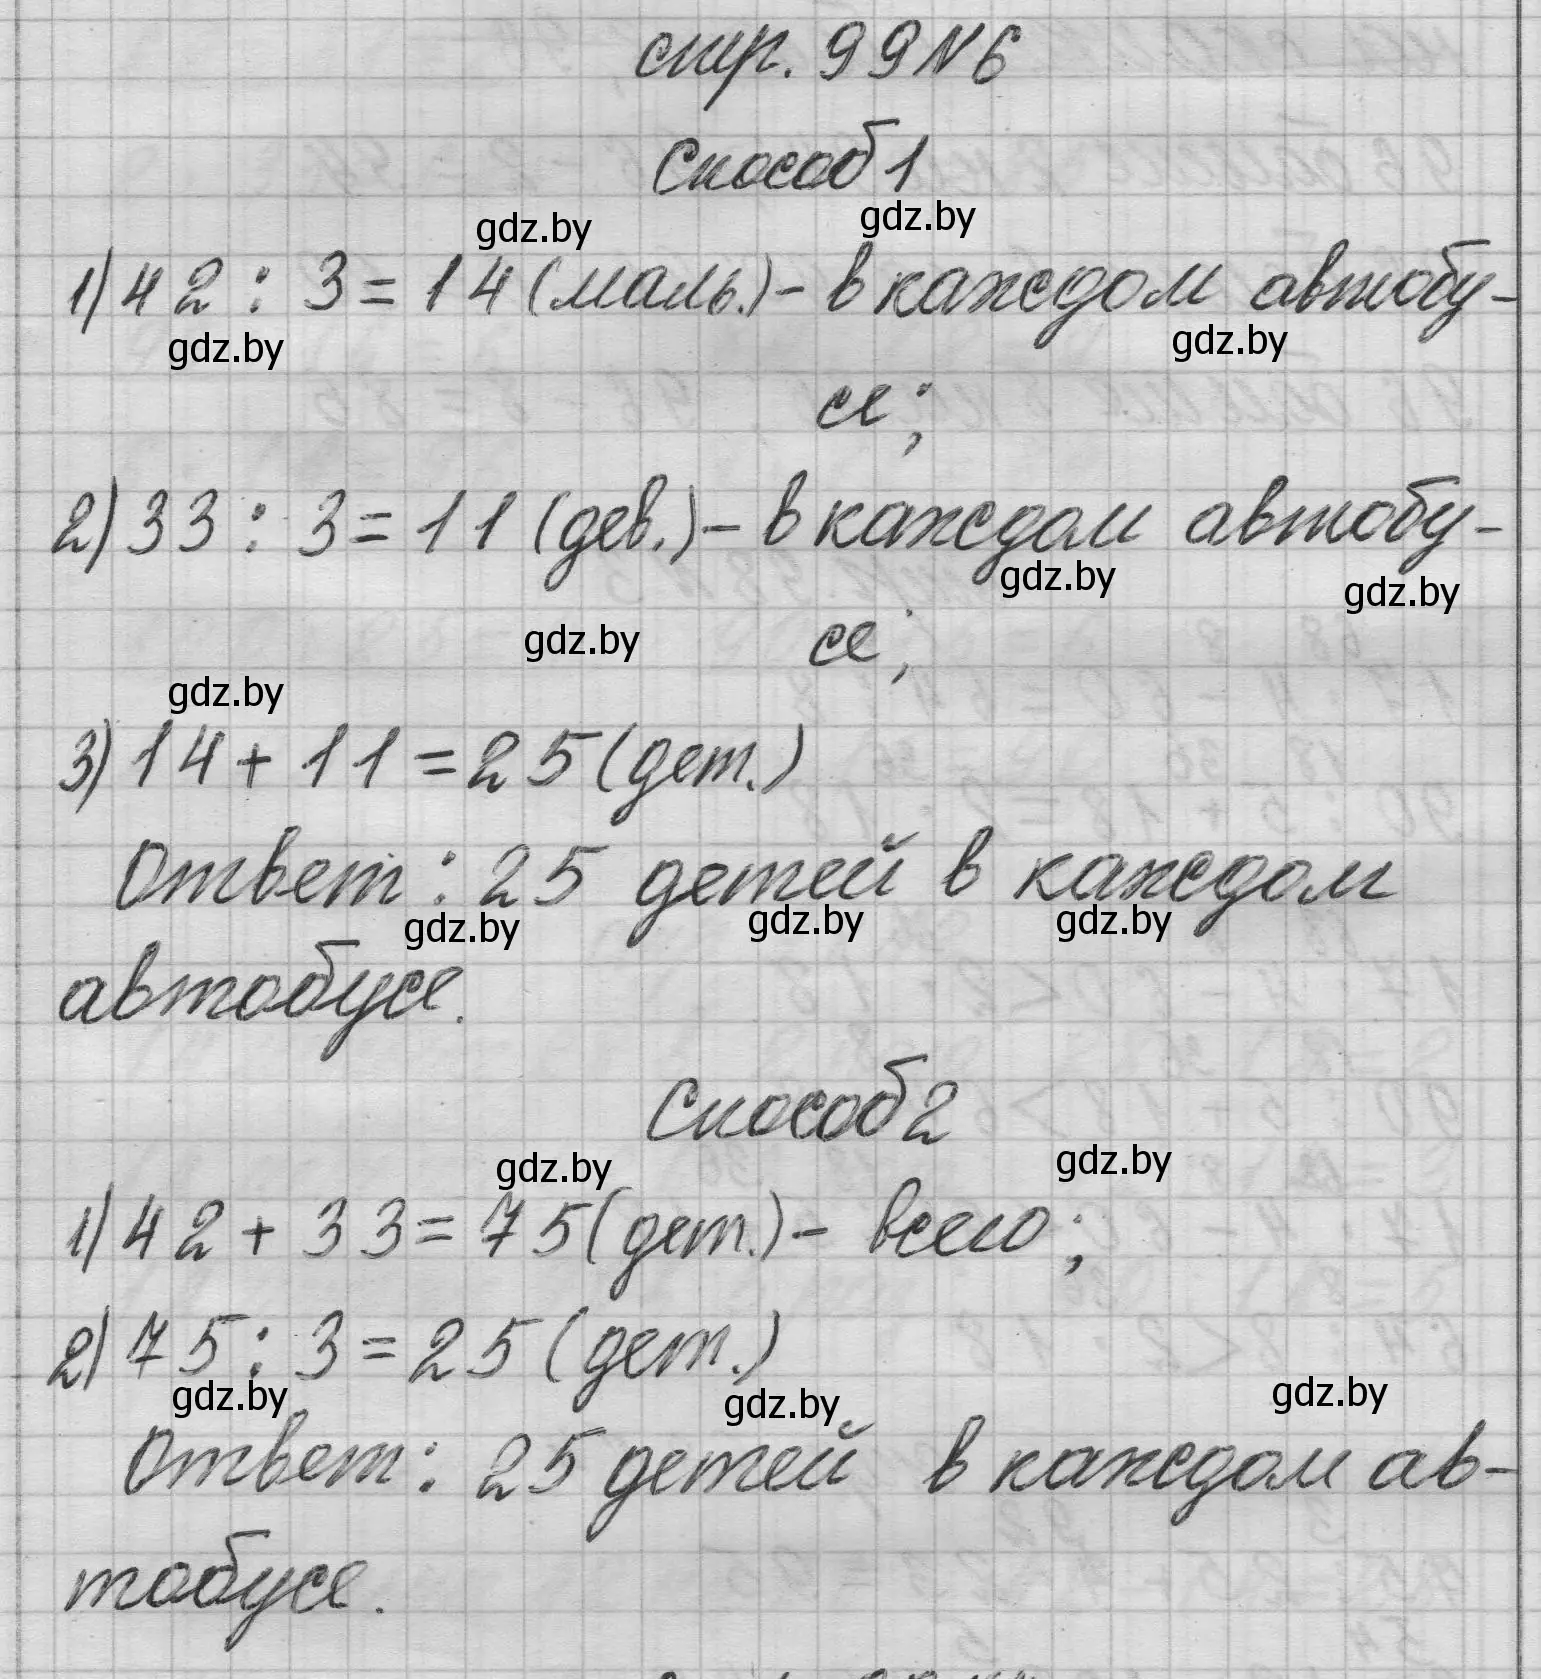 стр. 99 N 6
Способ 1
gdz.by gdz.by
1) 42 : 3 = 14 (маль.) - в каждом автобу-
gdz.by gdz.by
се;
2) 33 : 3 = 11 (дев.) - в каждом автобу-
gdz.by gdz.by
gdz.by се;
gdz.by
3) 14 + 11 = 25 (дет.)
Ответ : 25 детей в каждом
gdz.by gdz.by gdz.by
автобусе.
Способ 2
gdz.by gdz.by
1) 42 + 33 = 75 (дет.) - всего;
2) 75 : 3 = 25 (дет.)
gdz.by gdz.by gdz.by
Ответ : 25 детей в каждом ав-
тобусе.